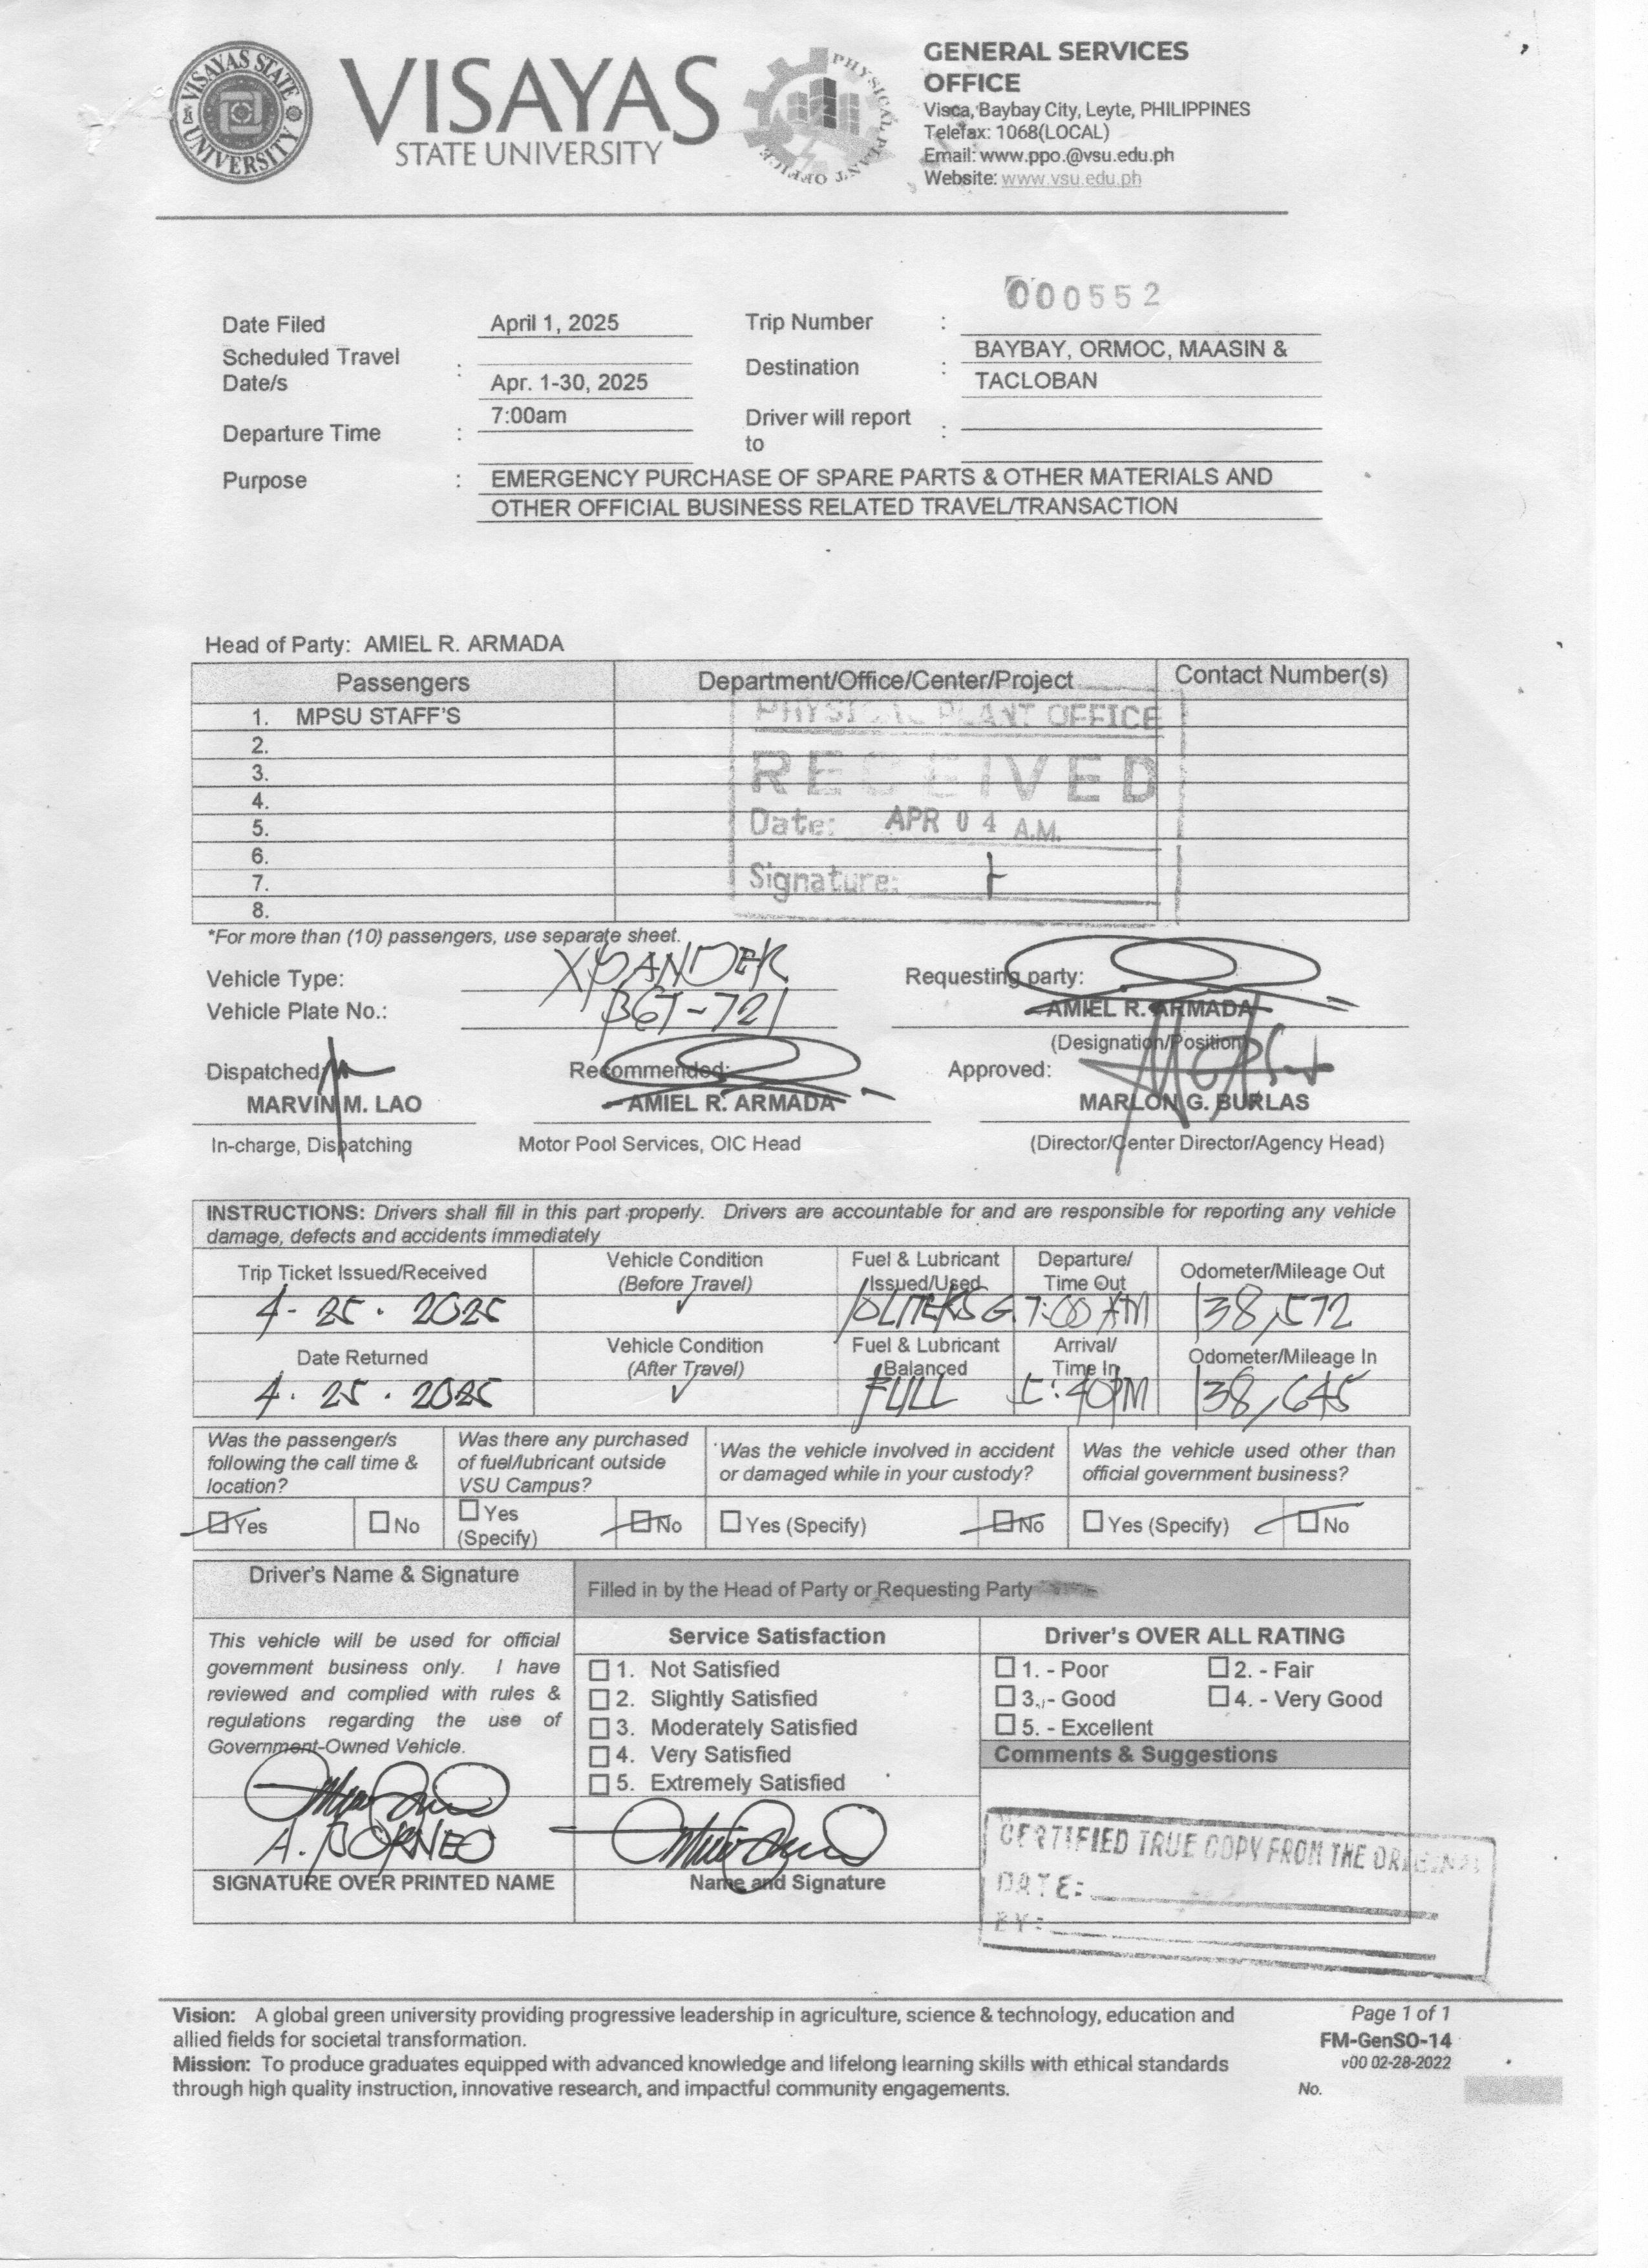 VISAYAS STATE UNIVERSITY
VISAYAS
STATE UNIVERSITY
PHYSICAL PLANT OFFICE
GENERAL SERVICES
OFFICE
Visca, Baybay City, Leyte, PHILIPPINES
Telefax: 1068(LOCAL)
Email: www.ppo.@vsu.edu.ph
Website: www.vsu.edu.ph
000552
Date Filed April 1, 2025 Trip Number :
Scheduled Travel Date/s : Apr. 1-30, 2025 Destination : BAYBAY, ORMOC, MAASIN &
TACLOBAN
Departure Time : 7:00am Driver will report to :
Purpose : EMERGENCY PURCHASE OF SPARE PARTS & OTHER MATERIALS AND
OTHER OFFICIAL BUSINESS RELATED TRAVEL/TRANSACTION
Head of Party: AMIEL R. ARMADA
Passengers Department/Office/Center/Project Contact Number(s)
1. MPSU STAFF'S
2.
3.
4.
5.
6.
7.
8.
PHYSICAL PLANT OFFICE
RECEIVED
Date: APR 04 A.M.
Signature:
*For more than (10) passengers, use separate sheet.
Vehicle Type: XPANDER Requesting party:
Vehicle Plate No.: AMIEL R. ARMADA
(Designation/Position)
Dispatched: Recommended: Approved:
MARVIN M. LAO AMIEL R. ARMADA MARLON G. BURLAS
In-charge, Dispatching Motor Pool Services, OIC Head (Director/Center Director/Agency Head)
INSTRUCTIONS: Drivers shall fill in this part properly. Drivers are accountable for and are responsible for reporting any vehicle
damage, defects and accidents immediately
Trip Ticket Issued/Received Vehicle Condition (Before Travel) Fuel & Lubricant Issued/Used Departure/ Time Out Odometer/Mileage Out
4-25-2025 ✓ 10LITERS G. 7:00 AM 138,572
Date Returned Vehicle Condition (After Travel) Fuel & Lubricant Balanced Arrival/ Time In Odometer/Mileage In
4-25-2025 ✓ FULL 5:40PM 138,645
Was the passenger/s following the call time & location? Was there any purchased of fuel/lubricant outside VSU Campus? Was the vehicle involved in accident or damaged while in your custody? Was the vehicle used other than official government business?
Yes No Yes (Specify) No Yes (Specify) No Yes (Specify) No
Driver's Name & Signature Filled in by the Head of Party or Requesting Party
This vehicle will be used for official
government business only. I have
reviewed and complied with rules &
regulations regarding the use of
Government-Owned Vehicle.
A. BORNEO
SIGNATURE OVER PRINTED NAME
Service Satisfaction
1. Not Satisfied
2. Slightly Satisfied
3. Moderately Satisfied
4. Very Satisfied
5. Extremely Satisfied
Name and Signature
Driver's OVER ALL RATING
1. - Poor 2. - Fair
3. - Good 4. - Very Good
5. - Excellent
Comments & Suggestions
CERTIFIED TRUE COPY FROM THE ORIGINAL
DATE:
BY:
Vision: A global green university providing progressive leadership in agriculture, science & technology, education and
allied fields for societal transformation.
Mission: To produce graduates equipped with advanced knowledge and lifelong learning skills with ethical standards
through high quality instruction, innovative research, and impactful community engagements.
Page 1 of 1
FM-GenSO-14
v00 02-28-2022
No.